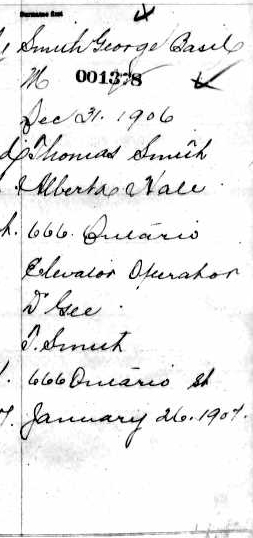 Smith George Basil
M 001378
Dec 31. 1906
Thomas Smith
Alberta Hale
666 Ontario
Elevator Operator
Dr Gee
T. Smith
666 Ontario st
January 26. 1907.